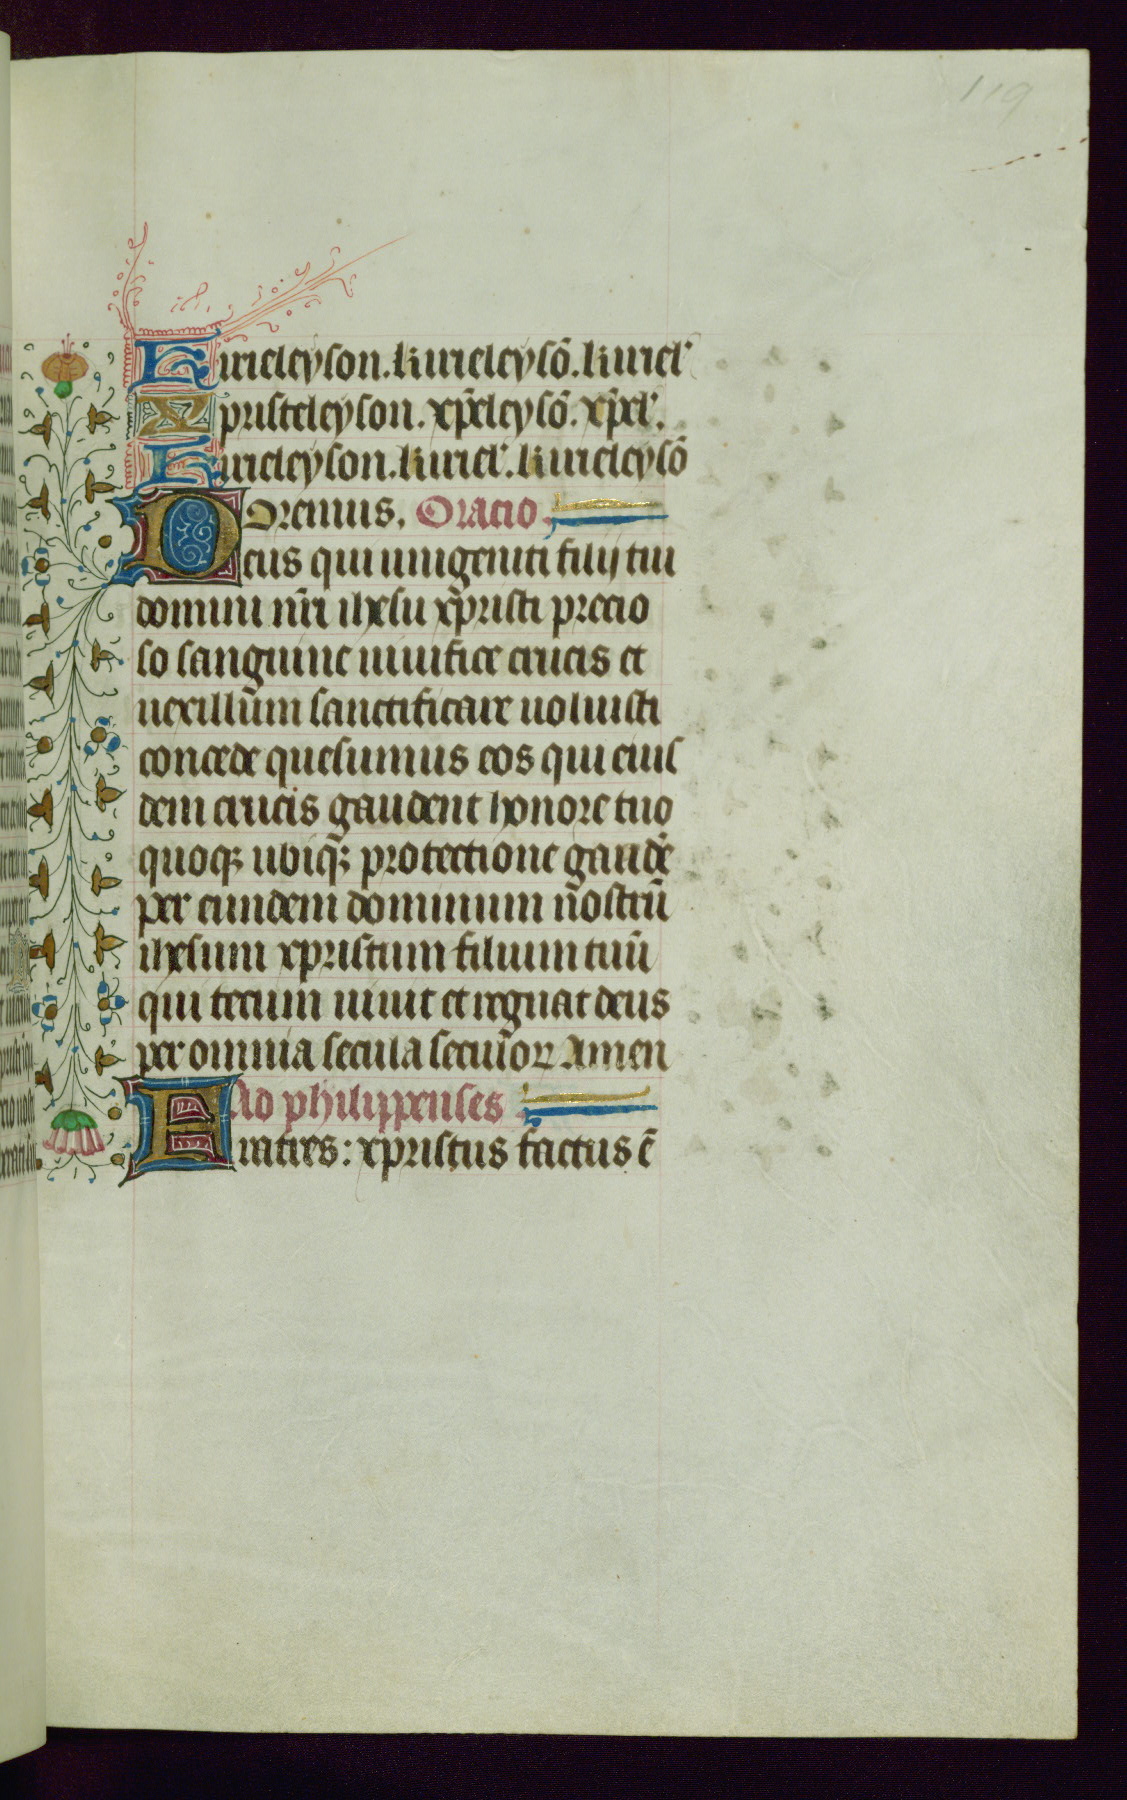 119
Kirieleyson. kirieleysō. kiriel'
Xpristeleyson. xp̄eleysō. xp̄el'.
Kirieleyson. kiriel'. kirieleysō
Oremus. Oracio
Deus qui unigeniti filij tui
domini nr̄i ihesu xp̄risti precio
so sanguine uiuifice crucis et
uexillūm sanctificare uoluisti
concede quesumus eos qui eius
dem crucis gaudent honore tuo
quoqꝫ ubiqꝫ protectione gaudē
per eundem dominum nōstrū
ihesum xpristum filium tuū
qui tecum uiuit et regnat deus
per omnia secula secūloꝝ Amen
Ad philippenses
Fratres: xpristus factus ē